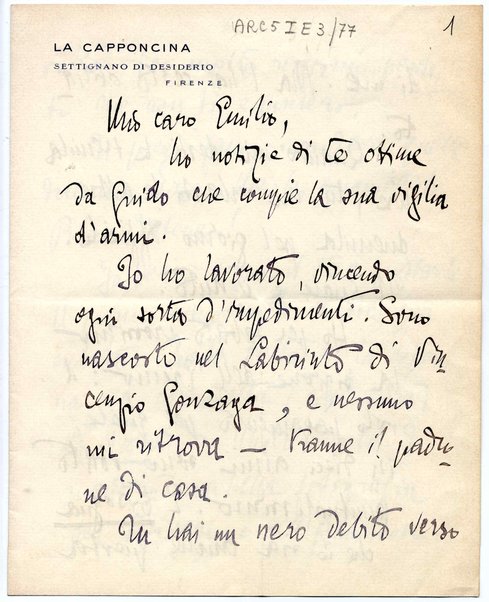 ARC5 I E 3/77
1
LA CAPPONCINA
SETTIGNANO DI DESIDERIO
FIRENZE
Mio caro Emilio,
ho notizie di te ottime
da Guido che compie la sua vigilia
d'armi.
Io ho lavorato, vincendo
ogni sorta d'impedimenti. Sono
nascosto nel Labirinto di Vin
cenzio Gonzaga, e nessuno
mi ritrova — tranne il padro
ne di casa.
Tu hai un nero debito verso